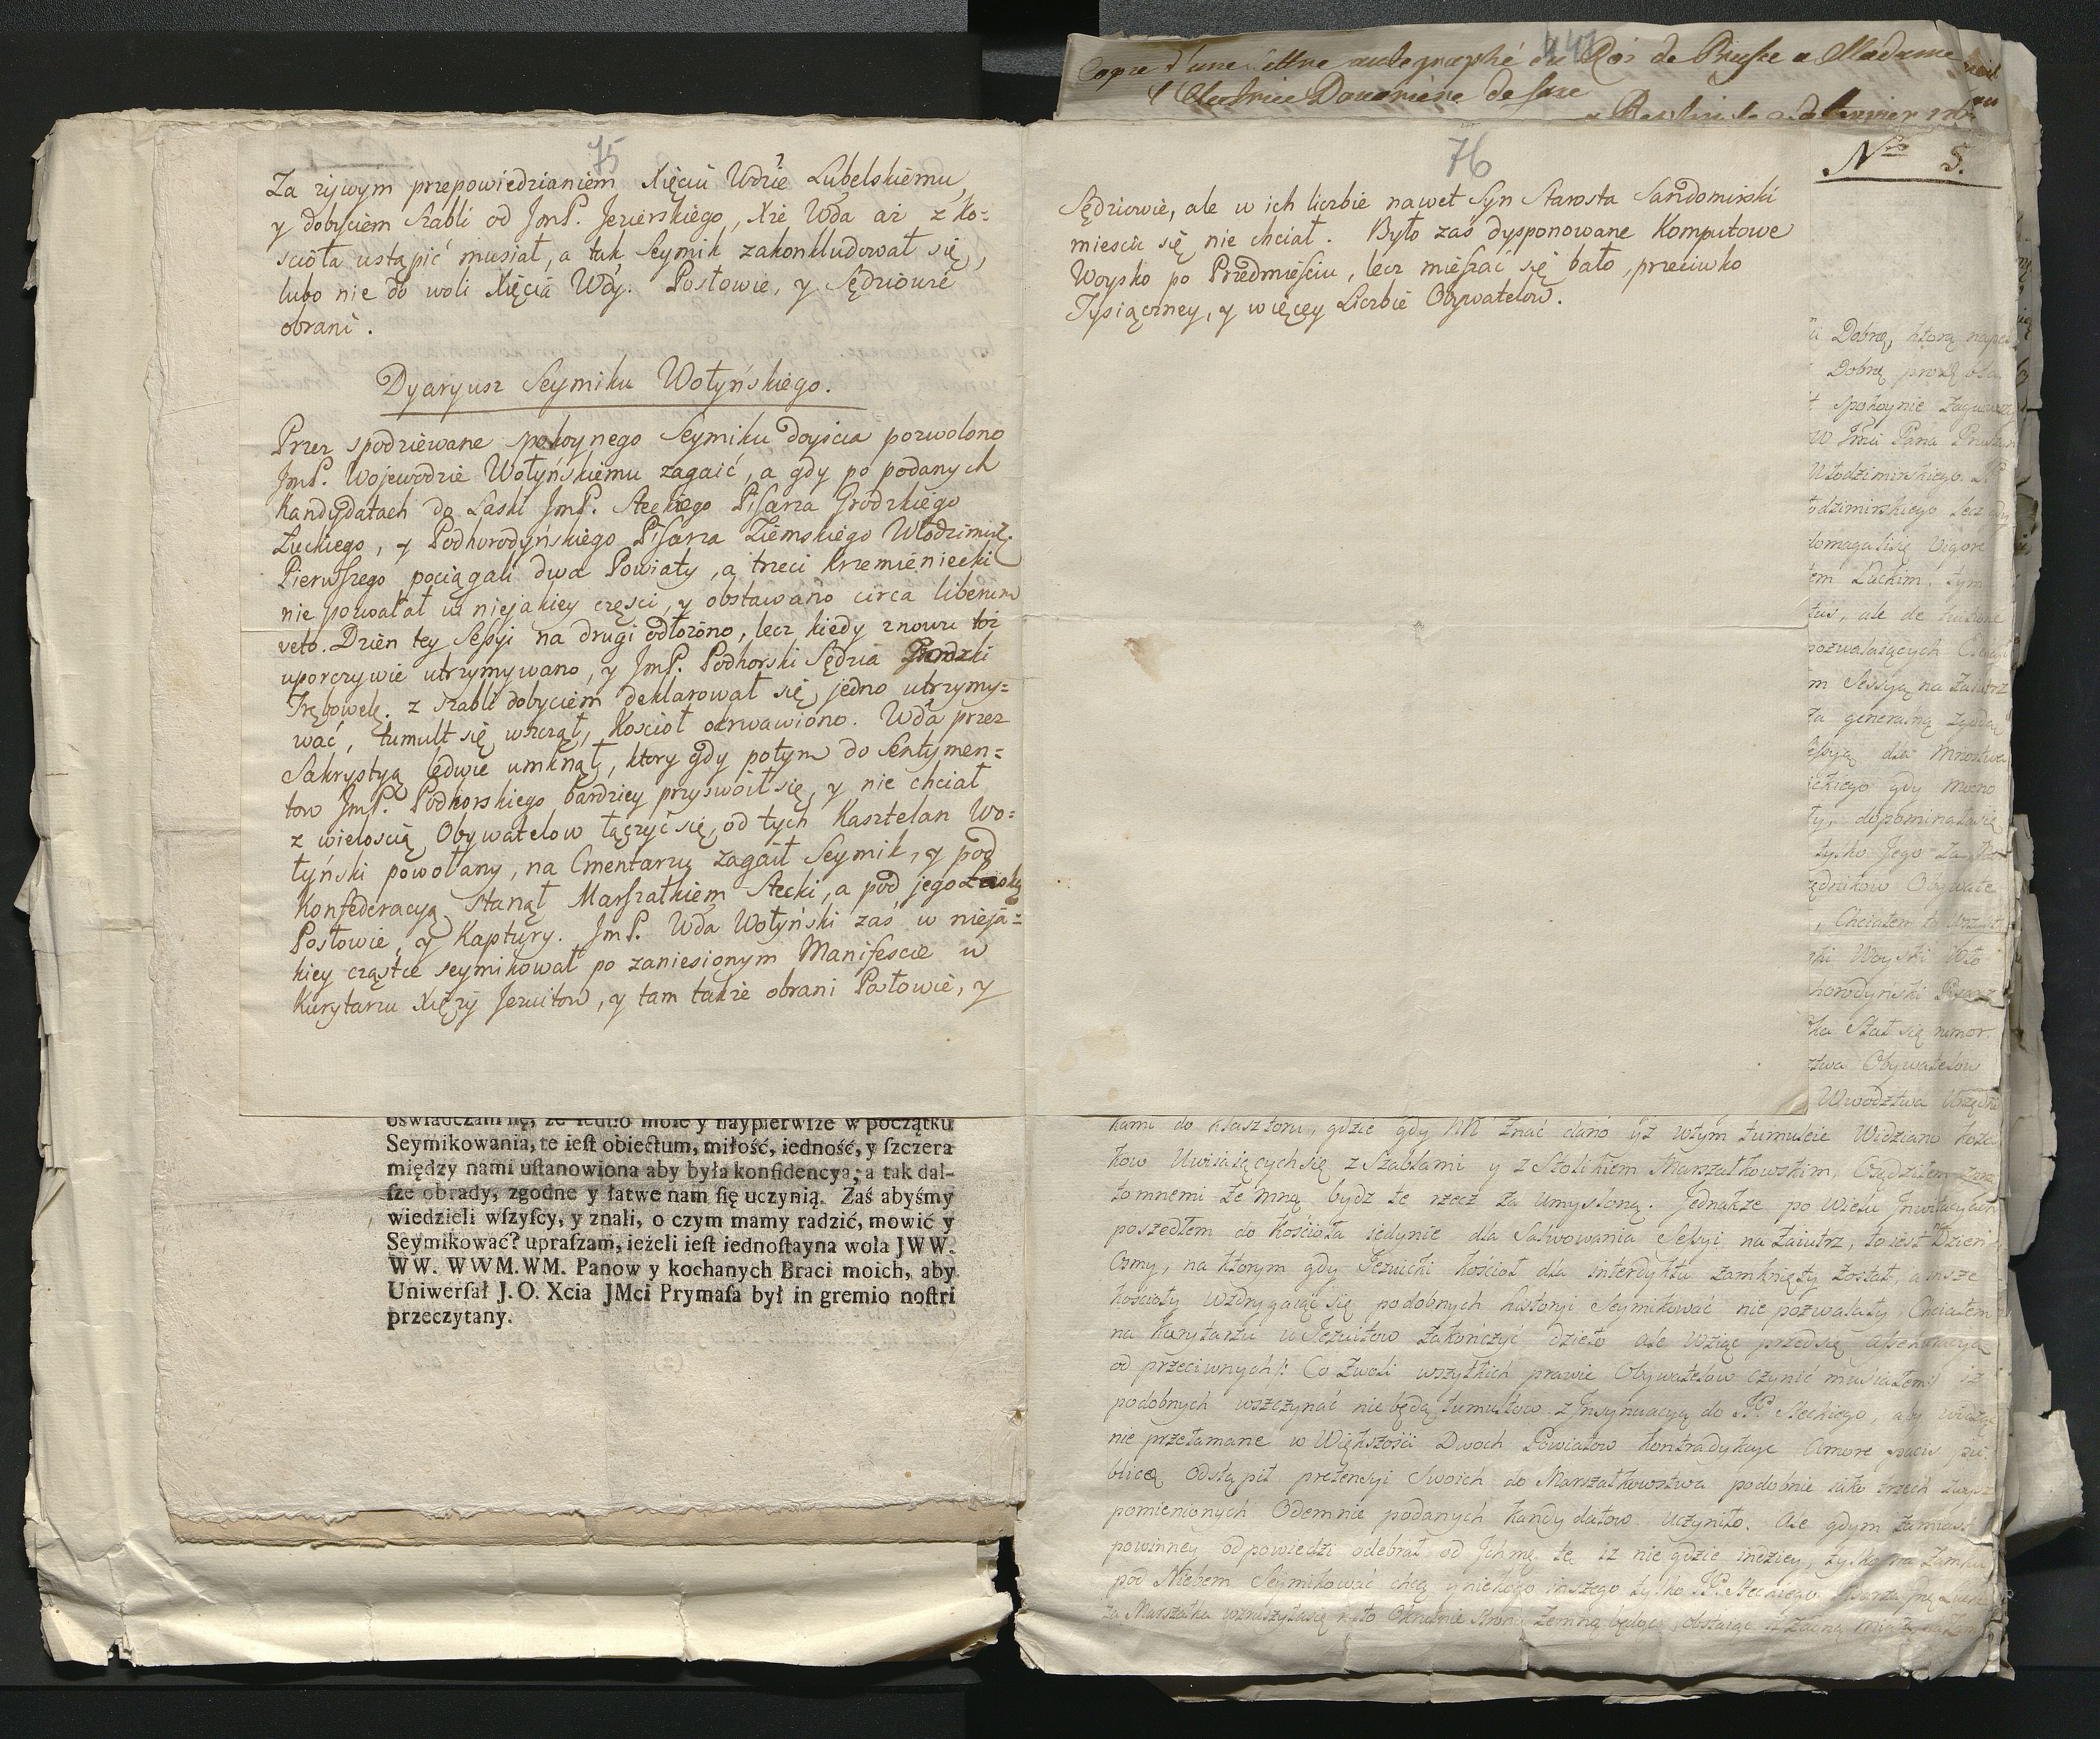 75
Za zijwym przepowiedzianiem Xięciu Wdzie Lubelskiemu,
y dobyciem Szabli od JmP. Jezierskiego, Xże Wda aż z Ko=
ścioła ustąpić musiał, a tak Seymik zakonkludował się,
lubo nie do woli Xięcia Wdy. Posłowie, y Sędziowie
obrani.
Dyaryusz Seymiku Wołyńskiego.
Przez spodziewane spokoynego Seymiku doyścia pozwolono
JmP. Wojewodzie Wołyńskiemu zagaić, a gdy po podanych
Kandydatach do Laski JmP. Steckiego Pisarza Grodzkiego
Łuckiego, y Podhorodyńskiego Pisarza Ziemskiego Włodzimirz.
Pierwszego pociągali dwa Powiaty, a trzeci Krzemieniecki
nie pozwalał w niejakiey częsci, y obstawano circa liberum
veto. Dzień tey Sessyi na drugi odłożono, lecz kiedy znowu toż
uporczywie utrzymywano, y JmP. Podhorski Sędzia Grodzki
Trębowelę. z szabli dobyciem deklarował się jedno utrzymy=
wać, tumult się wszczął, Kościoł okrwawiono. Wda przez
Sakrystyą ledwie umknął, ktory gdy potym do Sentymen=
tow JmP. Podhorskiego bardziey przyswoił się, y nie chciał
z wielością Obywatelow łączyć się, od tych Kasztelan Wo=
łyński powołany, na Cmentarzu zagaił Seymik, y pod
Konfederacyą stanął Marszałkiem Stecki, a pod jego Laską
Posłowie, y Kaptury. JmP. Wda Wołyński zaś w nieja=
kiey cząstce seymikował po zaniesionym Manifescie w
Kurytarzu Xięży Jezuitow, y tam także obrani Posłowie, y
oświadczam się, że iedno moie y naypierwsze w początku
Seymikowania, te iest obiectum, miłość, iedność, y szczera
między nami ustanowiona aby była konfidencya; a tak dal-
sze obrady, zgodne y łatwe nam się uczynią. Zaś abyśmy
wiedzieli wszyscy, y znali, o czym mamy radzić, mowić y
Seymikować? upraszam, ieżeli iest iednostayna wola JWW.
WW. WWM. WM. Panow y kochanych Braci moich, aby
Uniwersał J. O. Xcia JMci Prymasa był in gremio nostri
przeczytany.
Copie d'une lettre autographe du Roi de Prusse a Madame
l'Electrice Douairiere de Saxe
a Berlin le
76
Nro 5.
Sędziowie, ale w ich liczbie nawet Syn Starosta Sandomirski
miescić się nie chciał. Było zaś dysponowane Komputowe
Woysko po Przedmieściu, lecz mieszać się bało, przeciwko
Tysiączney, y więcey Liczbie Obywatelow.
Dobrę, ktorą
Dobrę proszę
spokoynie
w Jmci Pana
Włodzimirskiego.
odzimirskiego lecz gdy
domagalisię Vigore
em Luckim, tym
tus, ale de
pozwalaiących
m Sessyą na Zaiutrz
Za generalną zgodą
dla mnostwa
ckiego gdy mocno
ty, dopominałasię
tylko Jego
ędnikow Obywate
, Chciałem to
ski Woyski
horodyński Pisarz
Stał się rumor
stwa Obywatelow
Wwodztwa
kami do klasztoru, gdzie gdy mi znać dano iż wtym tumulcie widziano koza
kow Uwiiaiącychsię z Szablami y z Stolikiem Marszałkowskim, Osądziłem
tomnemi ze mną bydz te rzecz za umyslną. Jednakże po Wielu Jnwitacyach
poszedłem do Kościoła iedynie dla Salwowania Sessyi na Zaiutrz, to iest Dzień
Osmy, na ktorym gdy Jezuicki kościoł dla interdyktu zamknięty został, a insze
kościoły wzdrygaiąc się podobnych historyi Seymikować nie pozwalały Chciałem
na Kurytarzu u Jezuitow zakończyć dzieło ale wziąć przedsię
od przeciwnych /: Co zwoli wszytkich prawie Obywatelow czynić musiałem :/ iż
podobnych wszczynać niebędą tumultow z Jnsynuacyą do JP. Steckiego, aby widząc
nie przełamane w Większości Dwoch Powiatow kontradykcye Amore pacis pu-
blicę Odstąpił pretensyi Swoich do Marszałkowstwa podobnie iako trzech
pomienionych Odemnie podanych Kandydatow uczyniło. Ale gdym zamiast
powinney odpowiedzi odebrał od Jchmę. tę iż nie gdzie indziey, tylko na Zamku
pod Niebem Seymikować chcą y niekogo inszego tylko JP. Steckiego Pisarza
za Marszałka